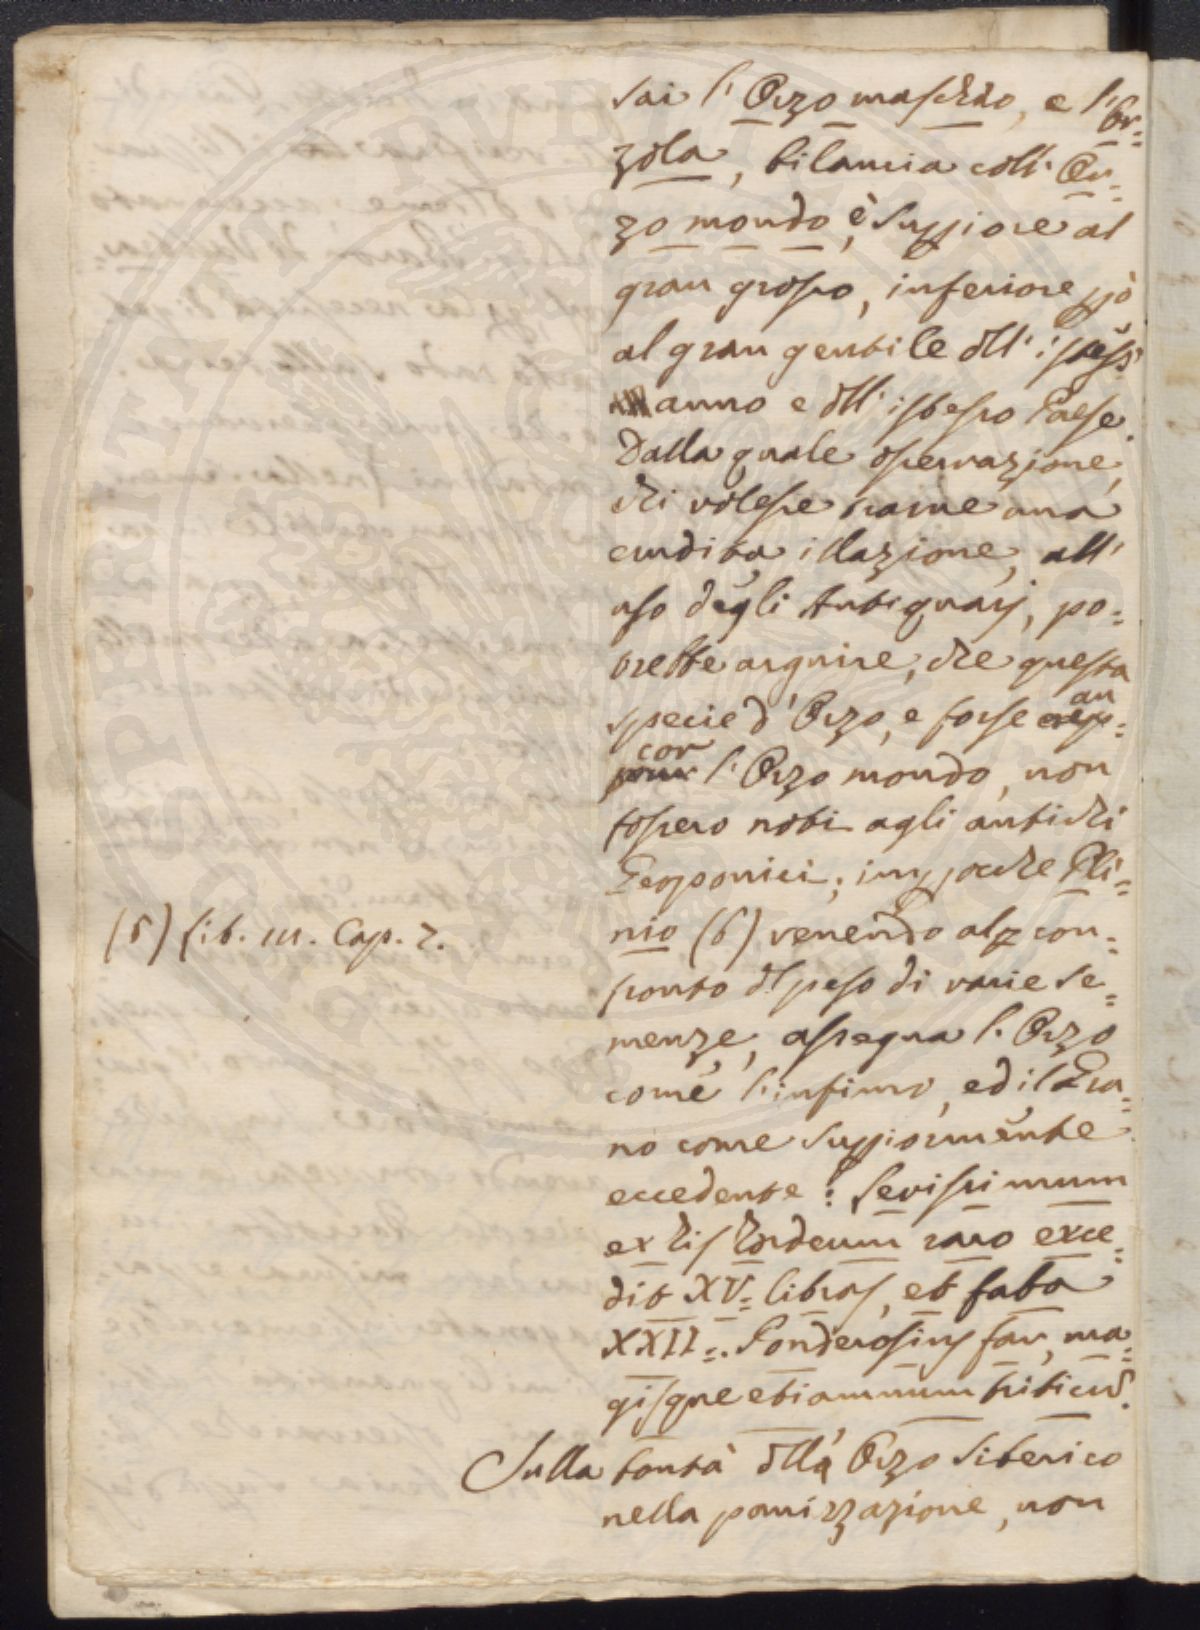 sai l'Orzo maschio, e l'Or=
zola, bilancia coll'Or=
zo mondo, è supiore al
gran grosso, inferiore pò
al gran gentile dll'istess'
anno e dll'istesso Paese.
Dalla quale osservazione,
chi volesse trarne una
erudita illazione, all'
uso degli Antiquarj, po=
trebbe arguire, che questa
specie d'Orzo, e forse an=
cor l'Orzo mondo, non
fossero noti agli antichi
Geoponici; impocchè Pli=
nio (6) venendo al con=
fronto dl peso di varie Se=
menze, assegna l'Orzo
come l'infimo, ed il Gra=
no come supiormente
eccedente: Levissimum
ex his hordeum raro exce=
dit XV= libras, et faba
XXII=. Ponderosius far, ma=
gisque etiamnum triticum.
Sulla bontà dll'Orzo Siberico
nella panizzazione, non
(6) Lib. III. Cap. 7.
SPQR